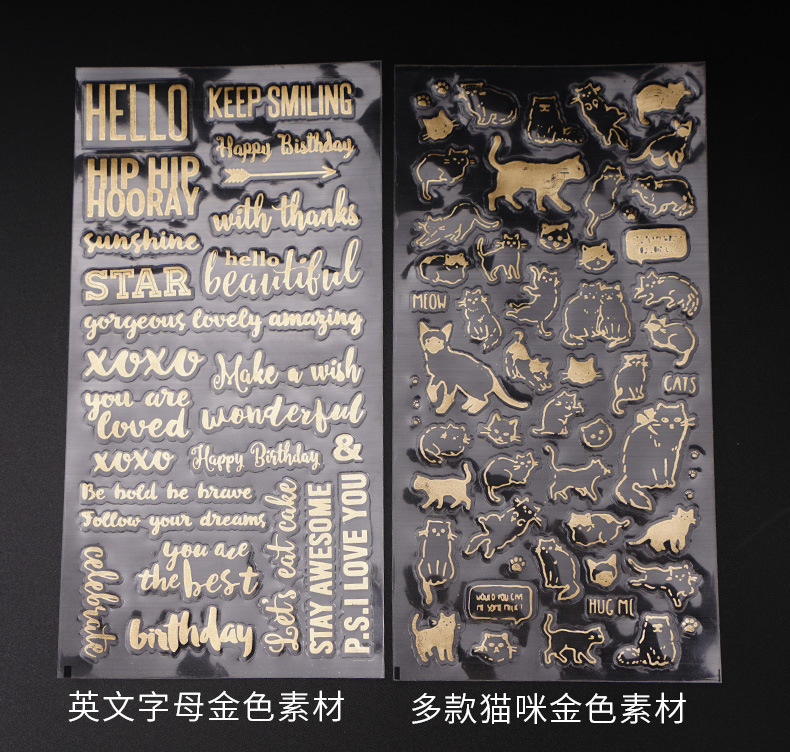 HELLO
KEEP SMILING
Happy Birthday
HIP HIP
HOORAY
with thanks
sunshine
hello
beautiful
STAR
gorgeous lovely amazing
xoxo
Make a wish
you are
loved
wonderful
xoxo
Happy Birthday
&
Be bold be brave
Follow your dreams
you are
the best
celebrate
birthday
Let's eat cake
STAY AWESOME
P.S. I LOVE YOU
MEOW
CATS
WOULD YOU GIVE
ME SOME MILK?
HUG ME
英文字母金色素材
多款猫咪金色素材